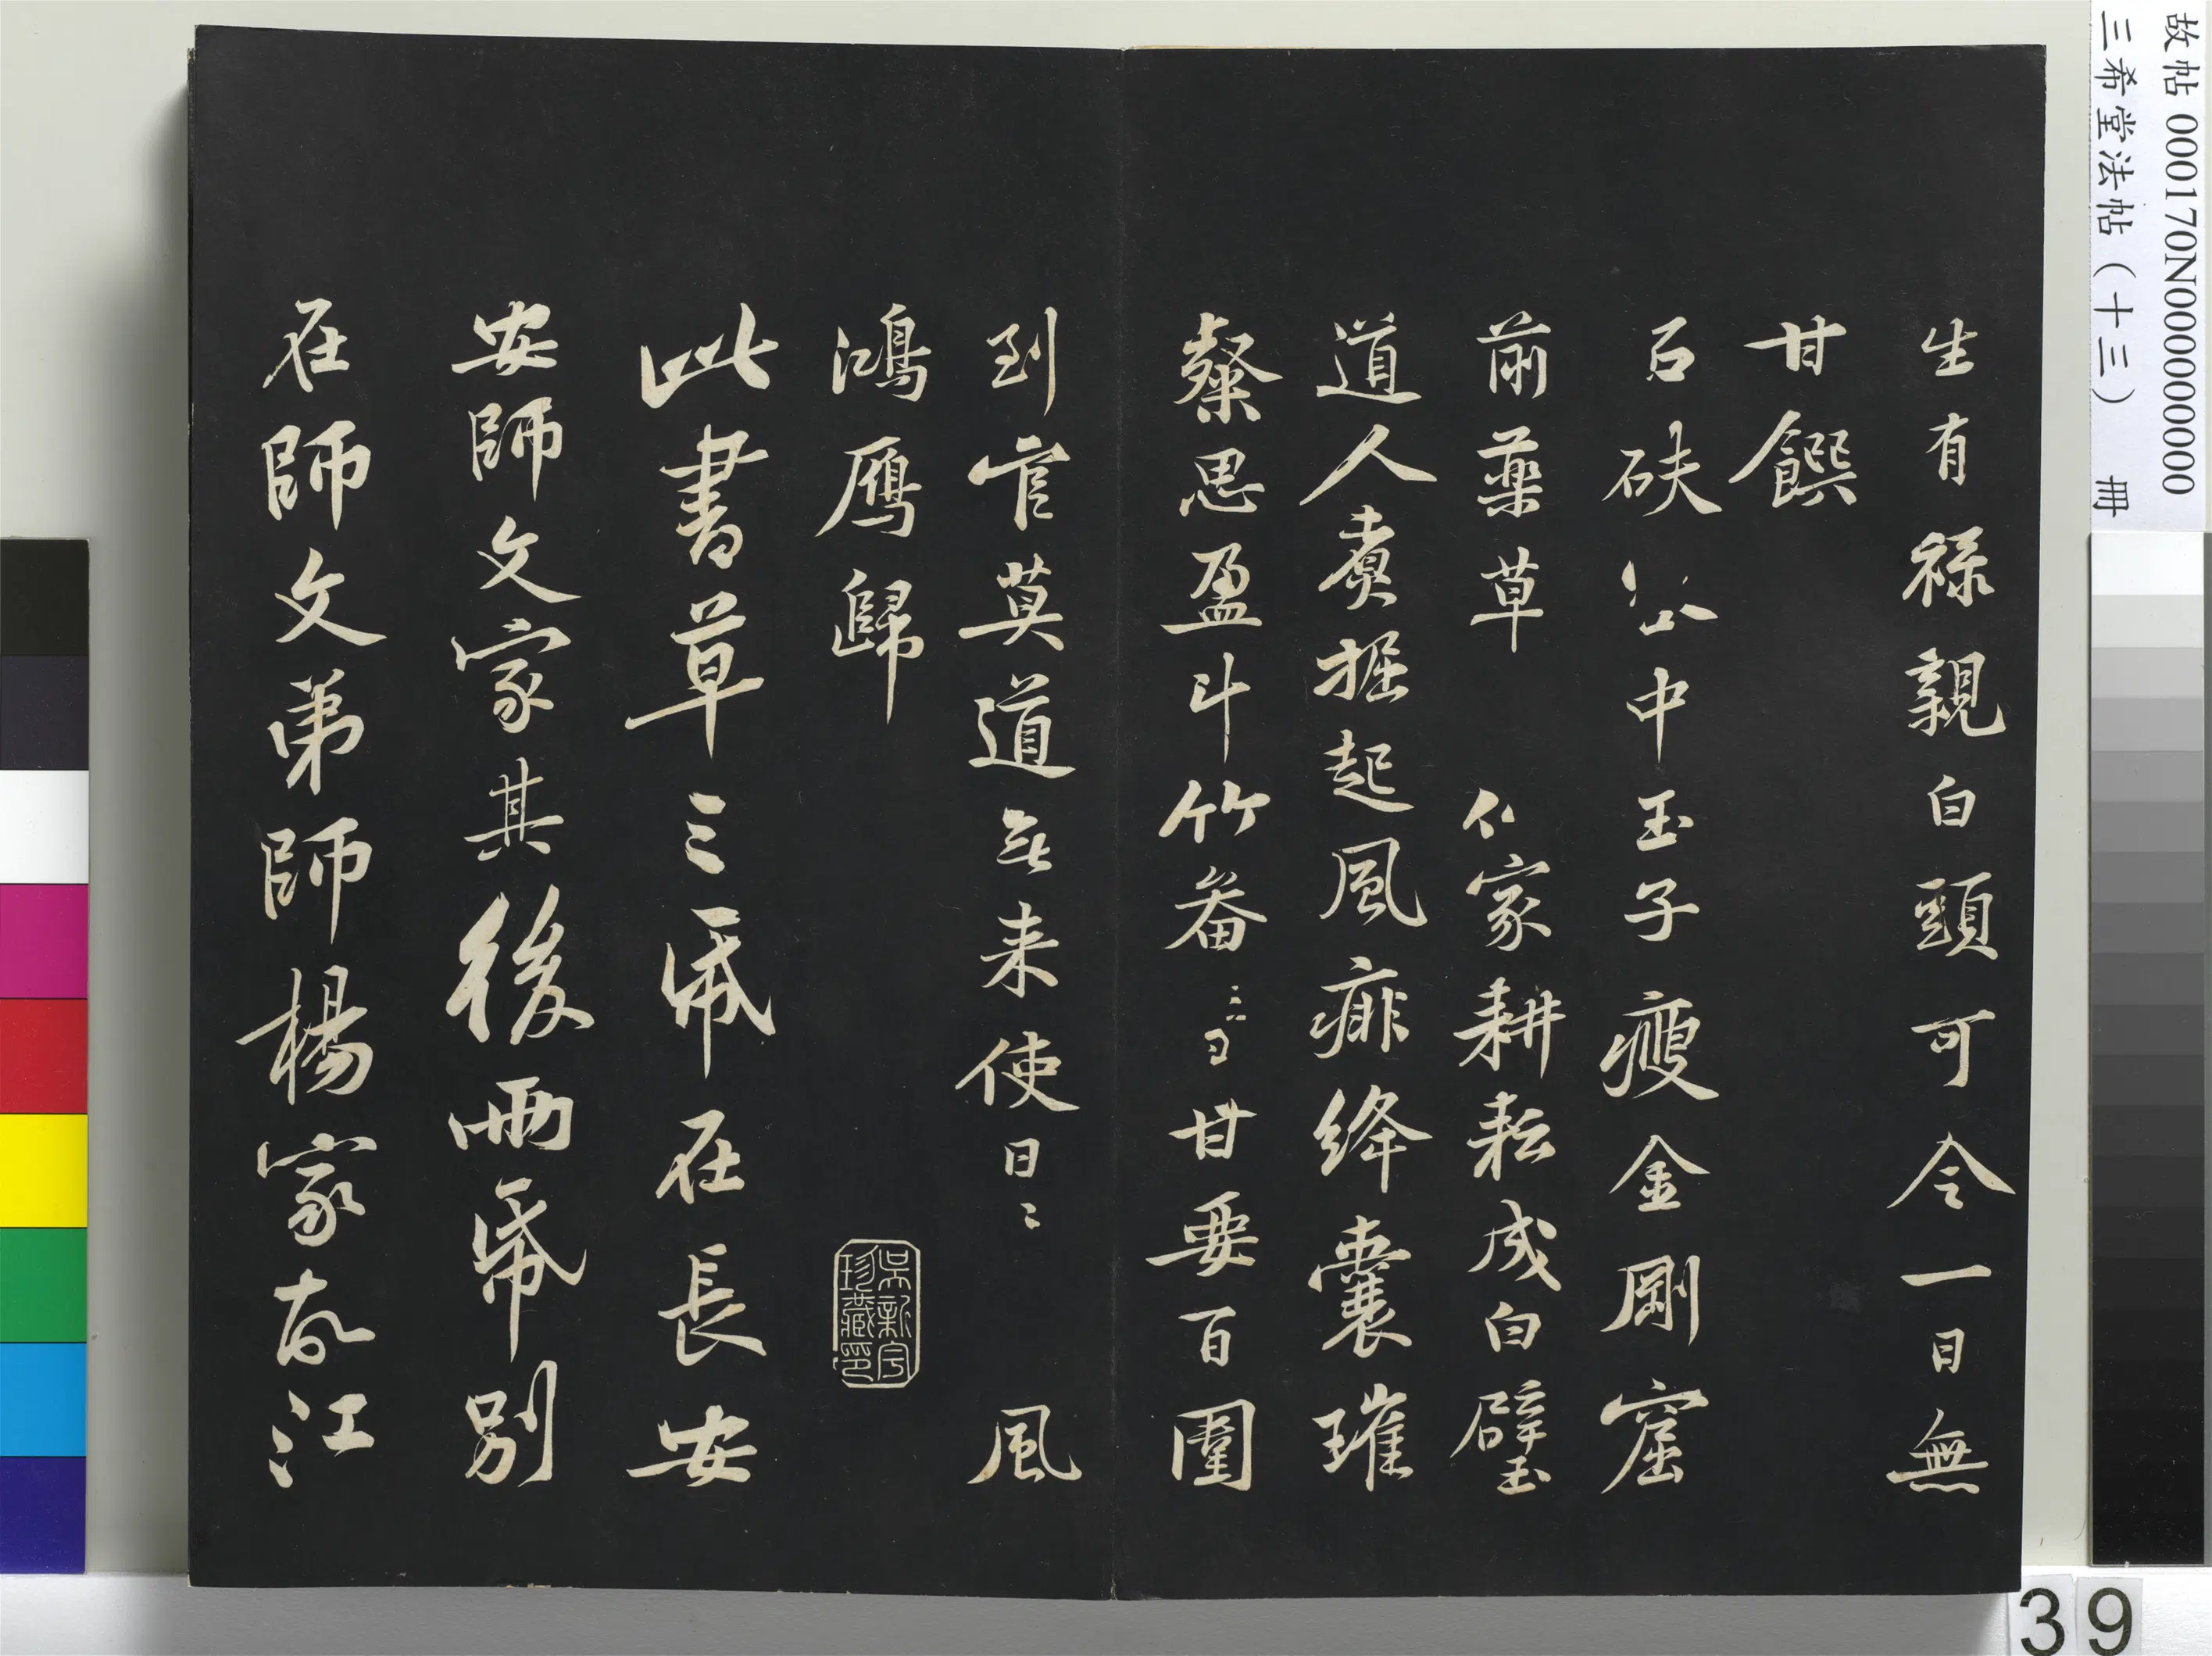 生有祿親白頭可令一日無
甘饌
石砆公中玉子瘦金剛窟
前藥草 仁家耕耘成白璧
道人煮掘起風痱絳囊璀
粲思盈斗竹畚 日甘要百圍
到官莫道無來使日〻 風
鴻雁歸
此書草三紙在長安
安師文家其後兩紙別
在師文弟師楊家故江
吳新宇珍藏印
故帖 000170N000000000
三希堂法帖(十三) 冊
39